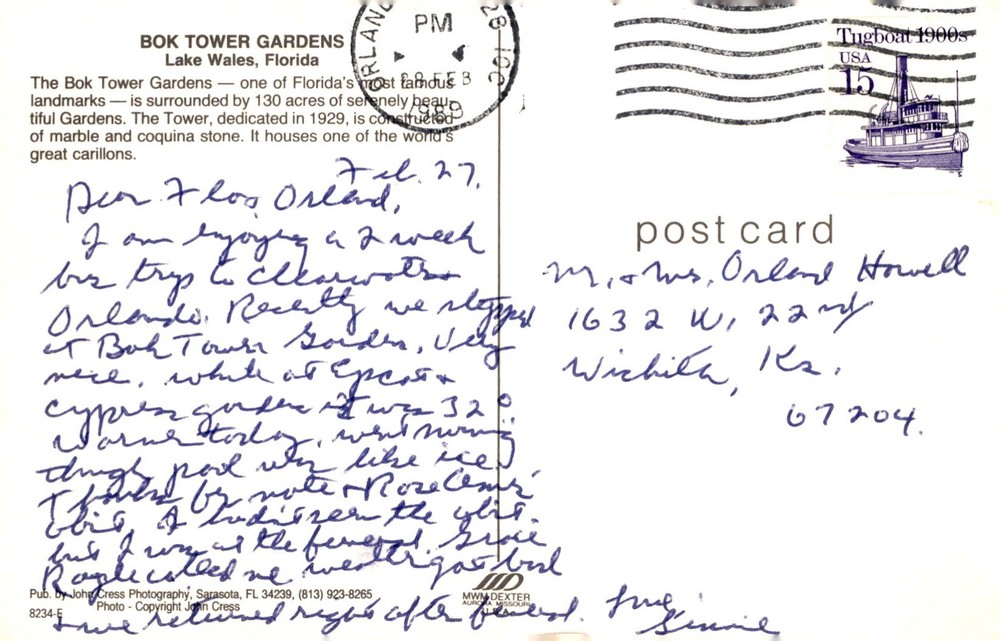 BOK TOWER GARDENS
Lake Wales, Florida
The Bok Tower Gardens — one of Florida's most famous
landmarks — is surrounded by 130 acres of serenely beau-
tiful Gardens. The Tower, dedicated in 1929, is constructed
of marble and coquina stone. It houses one of the world's
great carillons.
ORLANDO
PM
28 FEB
1989
Tugboat 1900s
USA
15
Feb. 27,
Dear Flos, Orland,
I am enjoying a 2 week
bus trip to Clearwater
Orlando. Recently we stopped
at Bok Tower Garden. Very
nice. while at Epcot +
cypress gardens it was 32°.
Warmer today, went swimming
though pool was like ice.
Thanks for note + Rose
obit. I hadn't seen the obit.
but I was at the funeral.
called me weather got bad
+ we returned right after funeral.
Love
Ginnie
post card
Mr. & Mrs. Orland Howell
1632 W. 22nd
Wichita, Ks.
67204.
Pub. by John Cress Photography, Sarasota, FL 34239, (813) 923-8265
Photo - Copyright John Cress
8234-E
MWM DEXTER
AURORA, MISSOURI